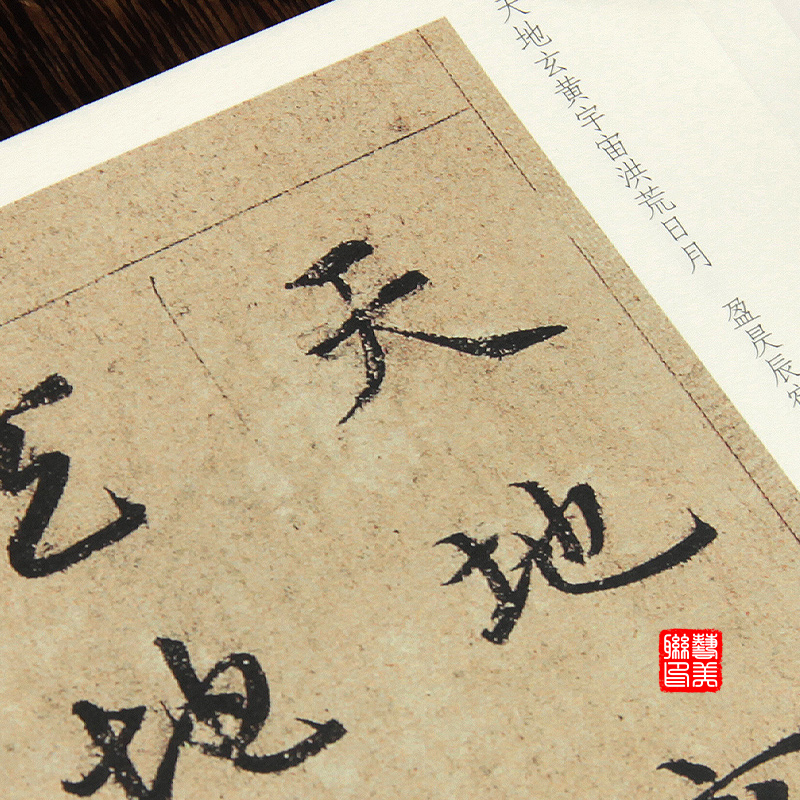 天地玄黄宇宙洪荒日月
盈昃辰
天地
天地
藝美
聯印